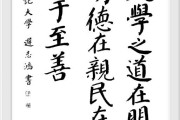 大學之道在明
明德在親民在
于至善
記大學 志鴻書